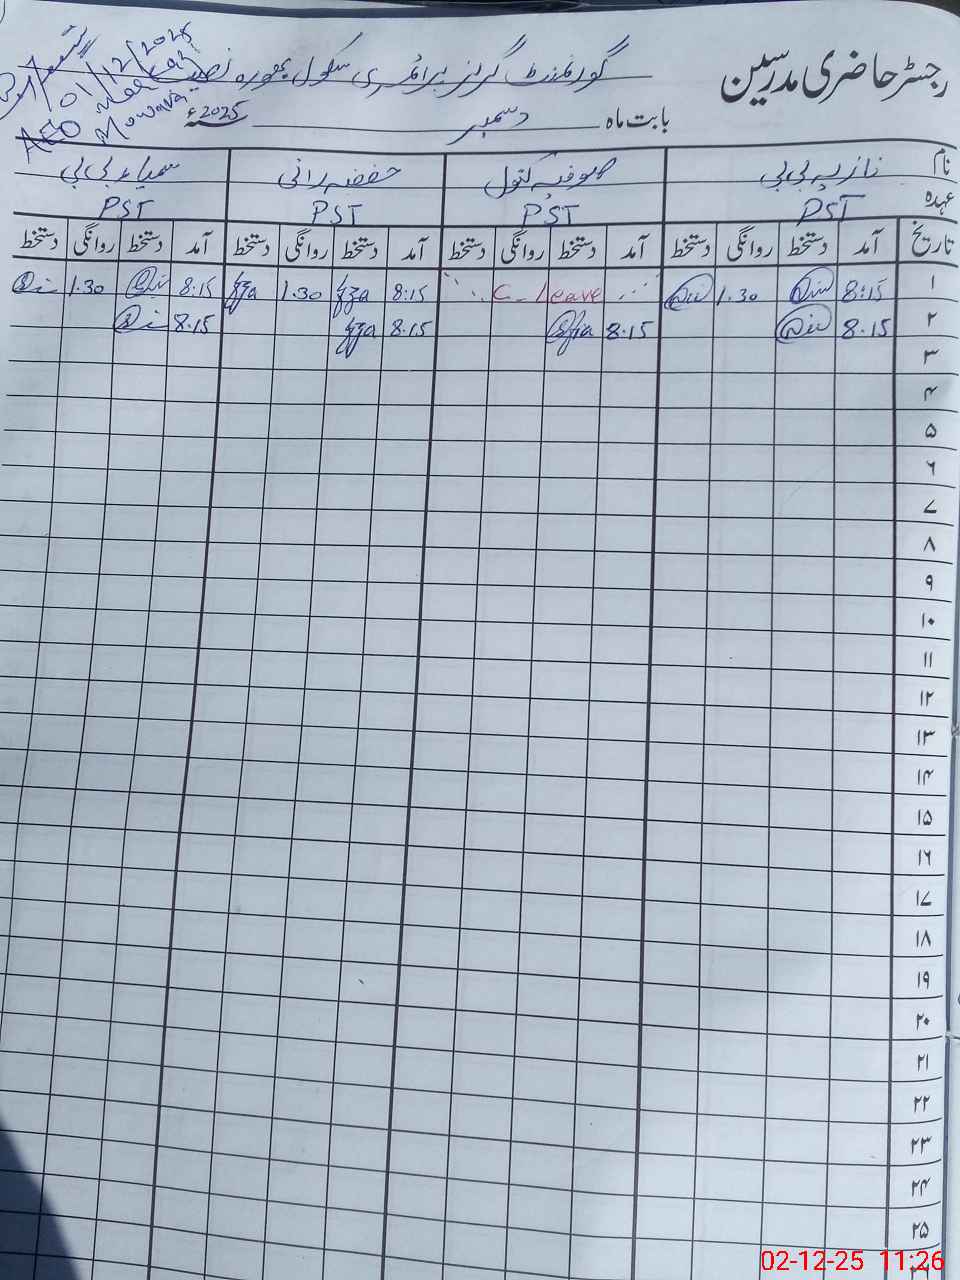 رجسٹر حاضری مدرسین
گورنمنٹ گرلز پرائمری سکول بھورہ نصیر
01/12/2025
AEO
بابت ماہ دسمبر سنہ 2025ء
نام نازیہ بی بی صوفیہ بتول حفضہ رانی سمیاء بی بی
عہدہ PST PST PST PST
تاریخ آمد دستخط روانگی دستخط آمد دستخط روانگی دستخط آمد دستخط روانگی دستخط آمد دستخط روانگی دستخط
۱ 8:15 1.30 C-Leave 8:15 1.30 8:15 1.30
۲ 8.15 8.15 8.15 8.15
۳
۴
۵
۶
۷
۸
۹
۱۰
۱۱
۱۲
۱۳
۱۴
۱۵
۱۶
۱۷
۱۸
۱۹
۲۰
۲۱
۲۲
۲۳
۲۴
۲۵
02-12-25 11:26